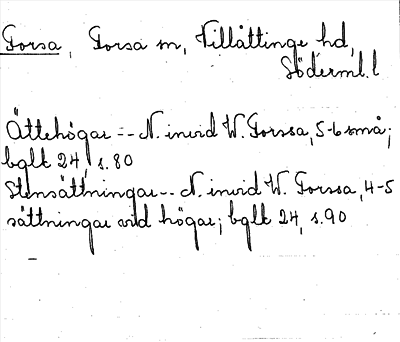 Forsa, Forsa sn, Villåttinge hd,
Söderml.l
Ättehögar -- N. invid W. Forssa, 5-6 små;
bglt 24, s.80
Stensättningar -- N. invid W. Forssa, 4-5
sättningar vid högar; bglt 24, s.90